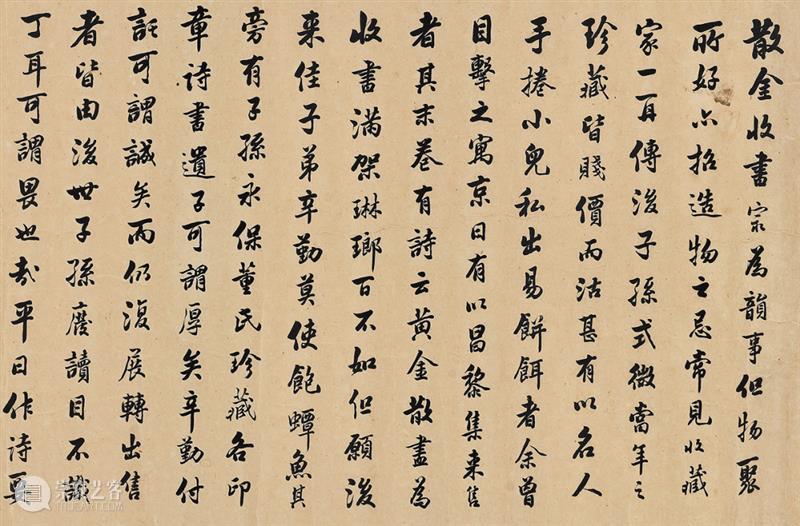 散金收書宗為韻事但物聚
所好亦招造物之忌常見收藏
家一再傳後子孫式微當年之
珍藏皆賤價而沽甚有以名人
手捲小兒私出易餅餌者余曾
目擊之寓京日有以昌黎集来售
者其末卷有詩云黃金散盡為
收書滿架琳瑯百不如但願後
来佳子弟辛勤莫使飽蟫魚其
旁有子孫永保董氏珍藏各印
章詩書遺子可謂厚矣辛勤付
託可謂誠矣而仍復展轉出售
者皆由後世子孫廢讀目不識
丁耳可謂畏也哉平日作詩要
崇真艺客
TRUEART.COM